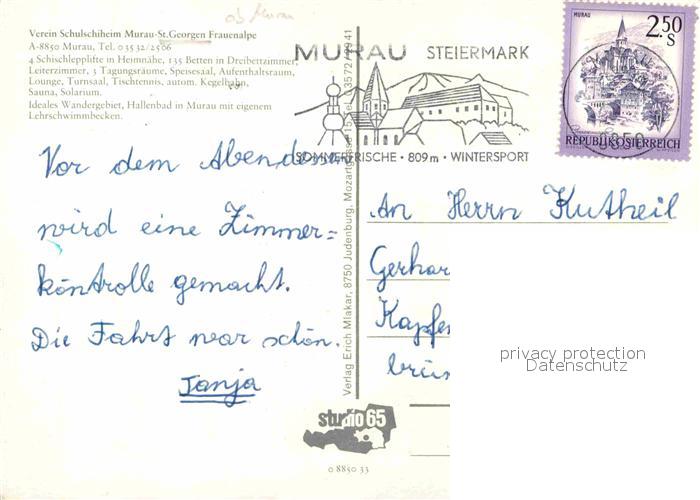 ob Murau
Verein Schulschiheim Murau-St.Georgen Frauenalpe
A-8850 Murau, Tel. 0 35 32/25 06
4 Schischlepplifte in Heimnähe, 135 Betten in Dreibettzimmer,
Leiterzimmer, 3 Tagungsräume, Speisesaal, Aufenthaltsraum,
Lounge, Turnsaal, Tischtennis, autom. Kegelbahn,
Sauna, Solarium.
Ideales Wandergebiet, Hallenbad in Murau mit eigenem
Lehrschwimmbecken.
MURAU STEIERMARK
SOMMERFRISCHE · 809 m · WINTERSPORT
MURAU
2.50
S
8850
REPUBLIK ÖSTERREICH
Vor dem Abendessen
wird eine Zimmer=
kontrolle gemacht.
Die Fahrt war schön.
Tanja
Verlag Erich Mlakar, 8750 Judenburg, Mozartgasse
An Herrn Kutheil
Gerhar
Kapfen
brüs
privacy protection
Datenschutz
studio 65
0 8850 33